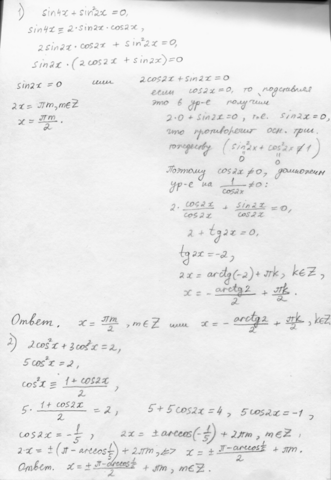 1) sin4x + sin²2x = 0.
sin4x ≡ 2·sin2x·cos2x,
2sin2x·cos2x + sin²2x = 0,
sin2x·(2cos2x + sin2x) = 0
sin2x = 0 или 2cos2x + sin2x = 0
2x = πm, m∈Z
x = πm/2.
если cos2x = 0, то подставляя
это в ур-е получим
2·0 + sin2x = 0, т.е. sin2x = 0,
что противоречит осн. триг.
тождеству (sin²2x + cos²2x ≠ 1)
0 0
Поэтому cos2x ≠ 0, домножим
ур-е на 1/cos2x ≠ 0:
2·cos2x/cos2x + sin2x/cos2x = 0,
2 + tg2x = 0,
tg2x = -2,
2x = arctg(-2) + πk, k∈Z,
x = -arctg2/2 + πk/2.
Ответ. x = πm/2, m∈Z или x = -arctg2/2 + πk/2, k∈Z
2) 2cos²x + 3cos²x = 2,
5cos²x = 2,
cos²x ≡ (1+cos2x)/2,
5·(1+cos2x)/2 = 2, 5 + 5cos2x = 4, 5cos2x = -1,
cos2x = -1/5, 2x = ±arccos(-1/5) + 2πm, m∈Z
2·x = ±(π - arccos1/5) + 2πm, <=> x = ±(π - arccos1/5)/2 + πm.
Ответ. x = ±(π - arccos1/5)/2 + πm, m∈Z.